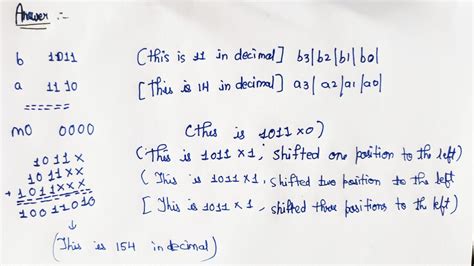 Answer :-
b 1011 (this is 11 in decimal] b3|b2|b1|b0|
a 1110 [This is 14 in decimal] a3|a2|a1|a0|
======
m0 0000 (this is 1011x0)
1011x (This is 1011x1, shifted one position to the left)
1011xx (This is 1011x1, shifted two position to the left
+ 1011xxx [This is 1011x1, shifted three positions to the left)
10011010
↓
(This is 154 in decimal)